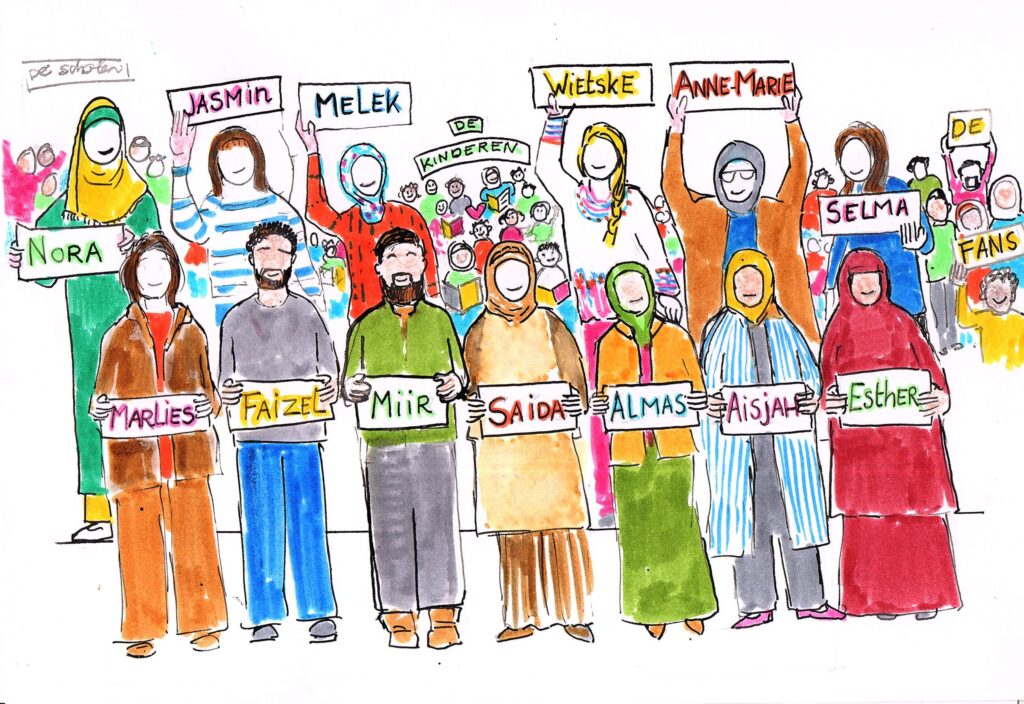 De scholen
JASMIN
MELEK
WIETSKE
ANNE-MARIE
DE
KINDEREN
DE
FANS
NORA
SELMA
MARLIES
FAIZEL
MIIR
SAIDA
ALMAS
AISJAH
ESTHER